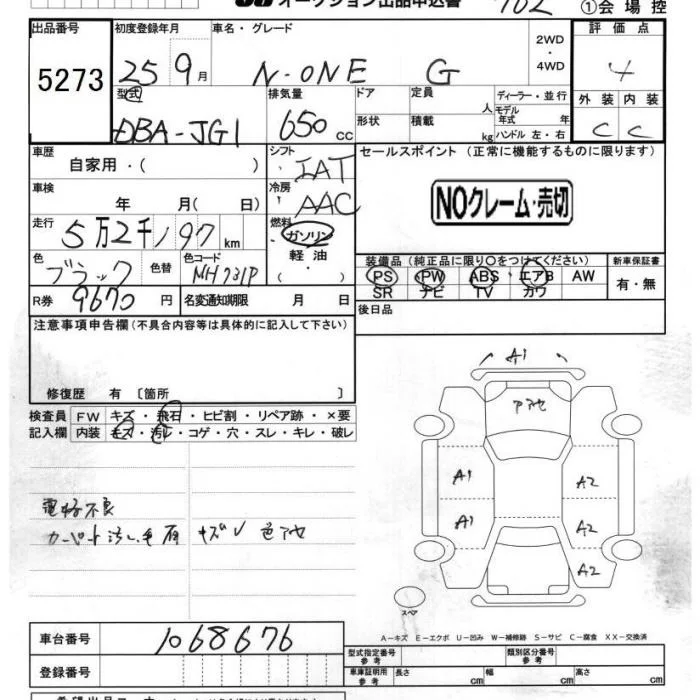 オークション出品申込書
①会場控
出品番号 初度登録年月 車名・グレード 2WD・4WD 評価点
5273 25 9月 N-ONE G 4
型式 排気量 ドア 定員 人 ディーラー・並行 外装 内装
DBA-JG1 650 cc 形状 積載 kg モデル年式 年 ハンドル 左・右 C C
車歴 シフト セールスポイント (正常に機能するものに限ります)
自家用・( ) IAT
車検 冷房
年 月( 日) AAC NOクレーム・売切
走行 燃料
5万2千197km ガソリン
軽油
・
( )
色 色替 色コード 装備品 (純正品に限り○をつけてください) 新車保証書
ブラック NH731P PS PW ABS エアB AW 有・無
SR ナビ TV カワ
R券 9670円 名変通知期限 月 日 後日品
注意事項申告欄(不具合内容等は具体的に記入して下さい)
修復歴 有 〔箇所 〕
検査員 FW キズ・飛石・ヒビ割・リペア跡・×要
記入欄 内装 キズ・汚レ・コゲ・穴・スレ・キレ・破レ
A1
A1 A2
A1 A2
A2
カーペット汚レ 有 キズ
スペア
A-キズ E-エクボ U-凹み W-補修跡 S-サビ C-腐食 XX-交換済
車台番号 1068676
型式指定番号 参考 類別区分番号 参考
登録番号 車庫証明用 参考 長さ cm 幅 cm 高さ cm